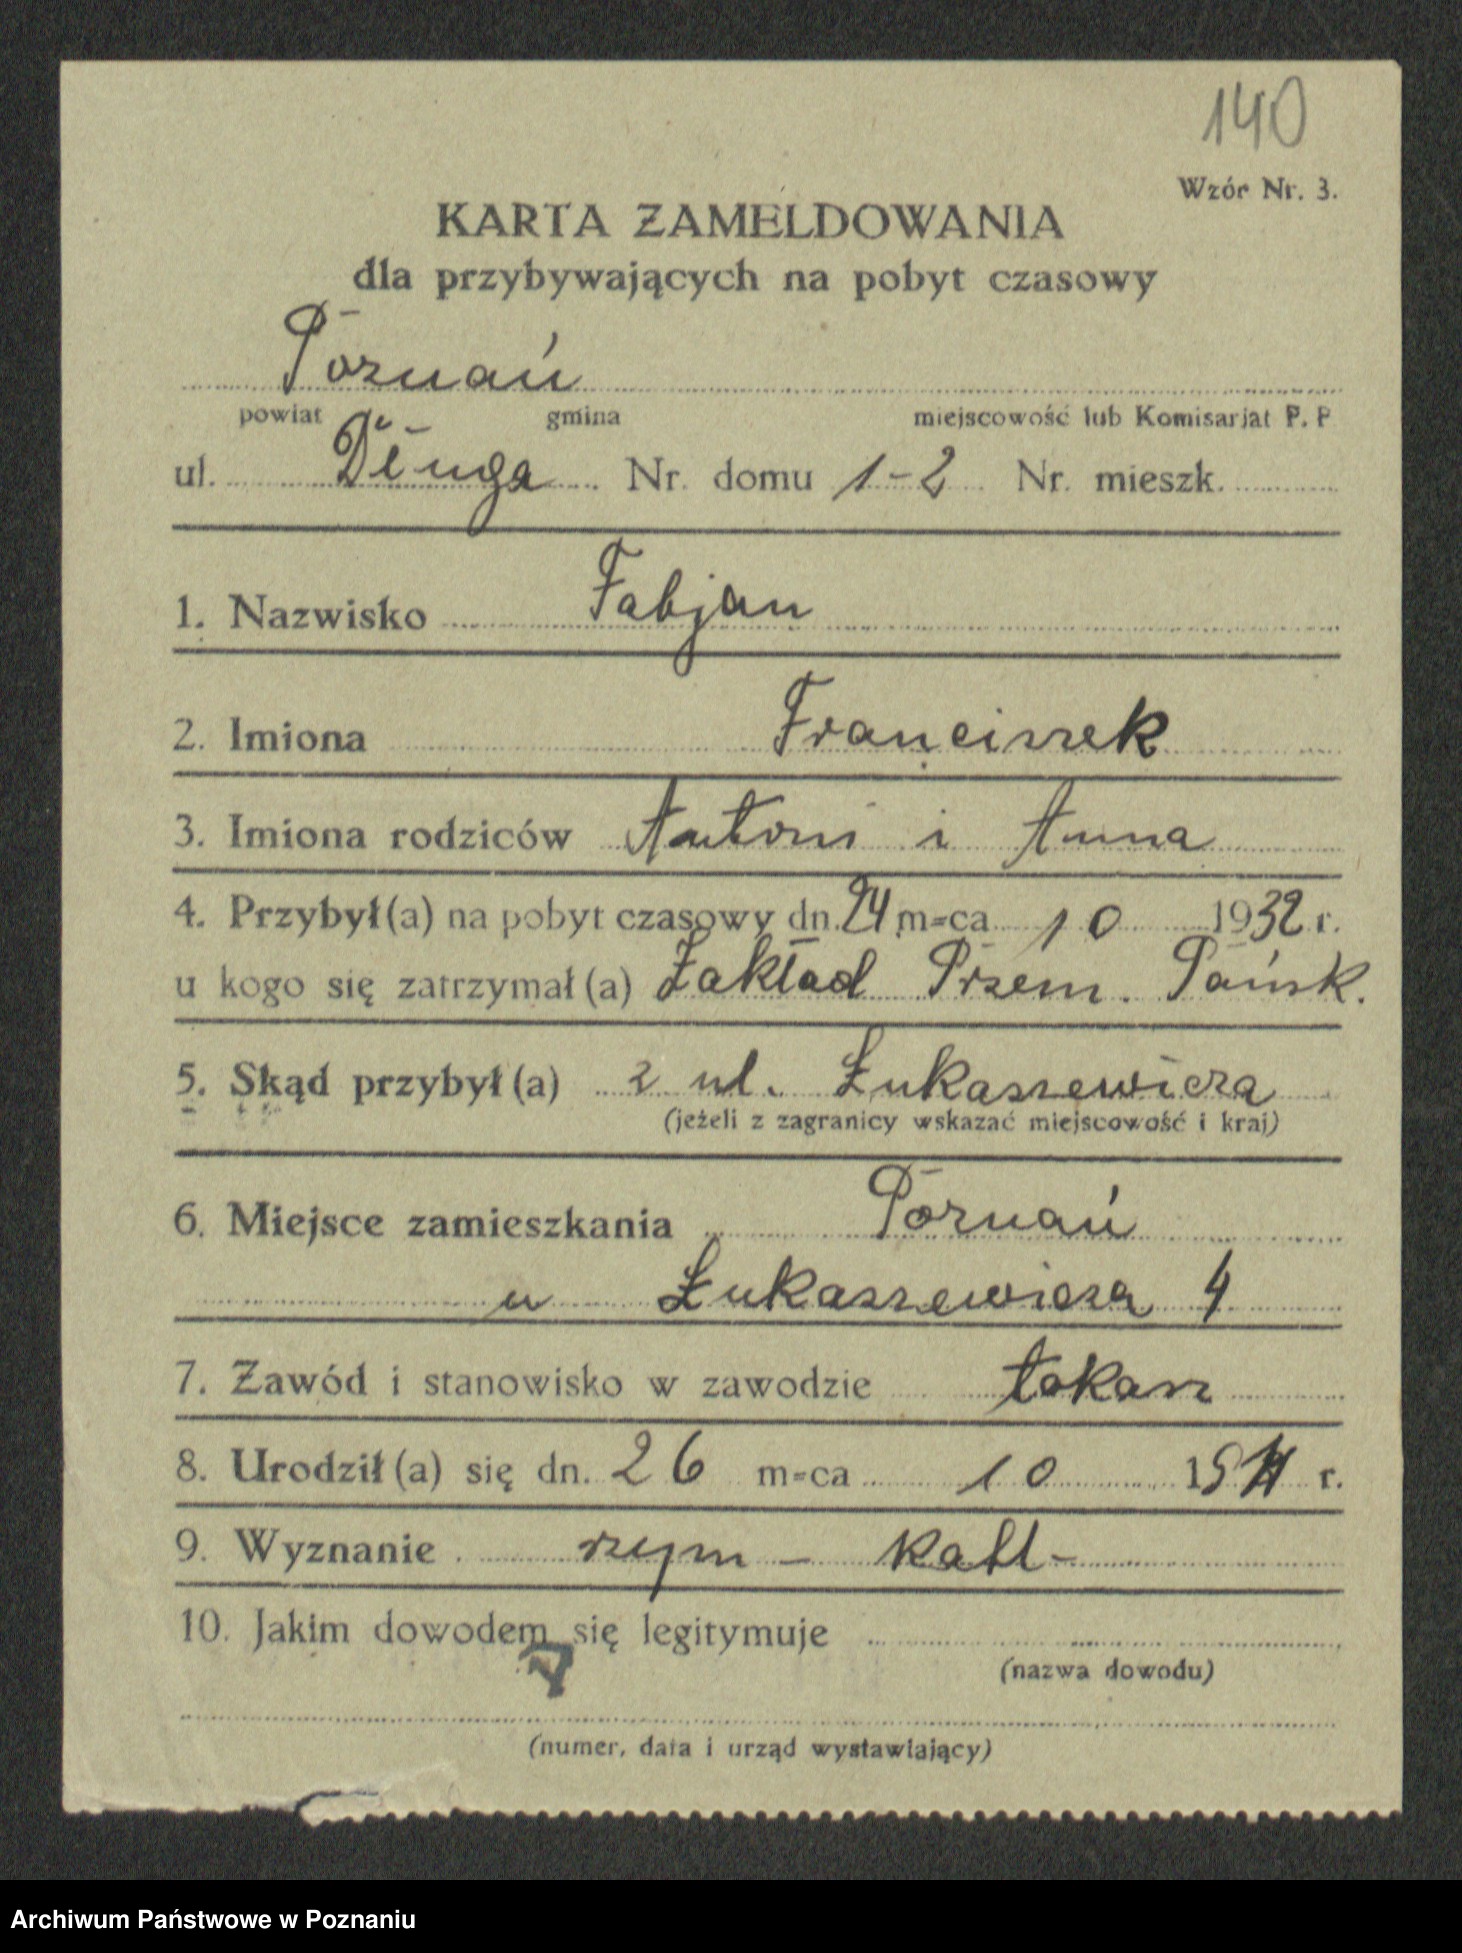 140
Wzór Nr. 3.
KARTA ZAMELDOWANIA
dla przybywających na pobyt czasowy
Poznań
powiat gmina miejscowość lub Komisarjat P. P
ul. Długa Nr. domu 1-2 Nr. mieszk.
1. Nazwisko Fabjan
2. Imiona Franciszek
3. Imiona rodziców Antoni i Anna
4. Przybył(a) na pobyt czasowy dn. 24 m=ca 10 1932 r.
u kogo się zatrzymał(a) Zakład Przem. Pańsk.
5. Skąd przybył(a) z ul. Łukaszewicza
(jeżeli z zagranicy wskazać miejscowość i kraj)
6. Miejsce zamieszkania Poznań
u Łukaszewicza 4
7. Zawód i stanowisko w zawodzie tokarz
8. Urodził(a) się dn. 26 m=ca 10 r.
9. Wyznanie rzym - katl-
10. Jakim dowodem się legitymuje
(nazwa dowodu)
(numer, data i urząd wystawiający)
Archiwum Państwowe w Poznaniu